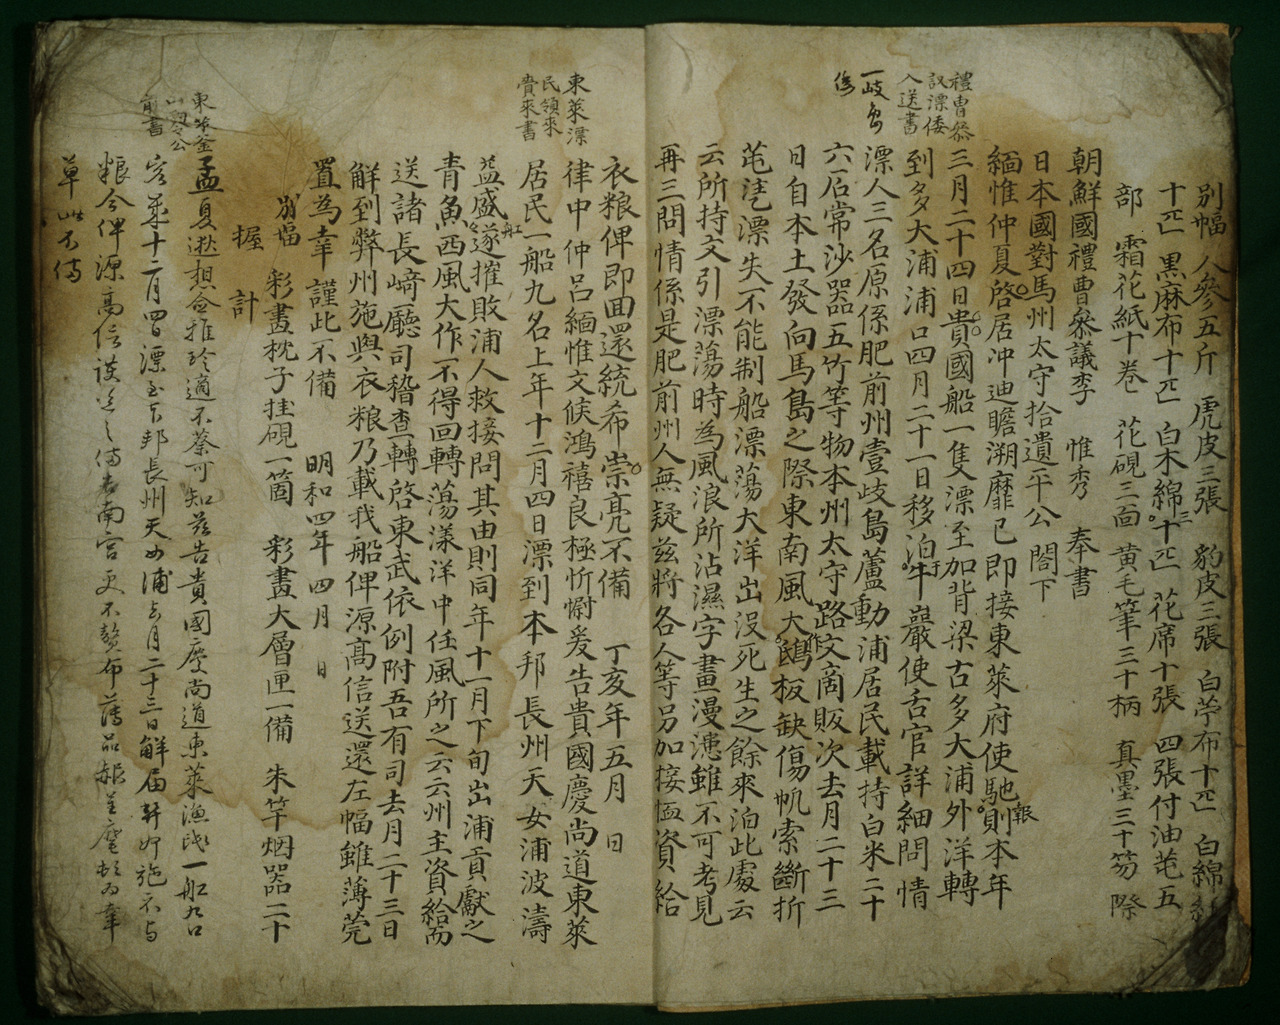 別幅 人參五斤 虎皮三張 豹皮三張 白苧布十疋 白綿紬
十疋 黒麻布十疋 白木綿三十疋 花席十張 四張付油芚五
部 霜花紙十巻 花硯三面 黄毛筆三十柄 真墨三十笏 際
朝鮮國禮曹叅議李 惟秀 奉書
日本國對馬州太守拾遺平公 閤下
緬惟仲夏啓居冲迪瞻溯靡已即接東萊府使馳報則本年
禮曹叅
議漂倭
入送書
三月二十四日貴國船一隻漂至加背梁古多大浦外洋轉
到多大浦浦口四月二十一日移泊于牛巖使舌官詳細問情
一岐島
倭
漂人三名原係肥前州壹岐島蘆動浦居民載持白米二十
六石常沙器五竹等物本州太守路文作啇販次去月二十三
日自本土發向馬島之際東南風大鴟板缺傷帆索斷折
芚漂失不能制船漂蕩大洋出沒死生之餘來泊此處云
云所持文引漂蕩時為風浪所沾濕字畫漫漶雖不可考見
再三問情係是肥前州人無疑茲將各人等另加接恤資給
衣粮俾即囬還統希崇亮不備 丁亥年五月 日
東萊漂
民領來
賫來書
律中仲呂緬惟文候鴻禧良極忻慰爰告貴國慶尚道東萊
居民一船九名上年十二月四日漂到本邦長州天女浦波濤
益盛船遂摧敗浦人救接問其由則同年十一月下旬出浦貢獻之
青魚西風大作不得回轉蕩漾洋中任風所之云云州主資給而
送諸長﨑廳司稽査轉啓東武依例附吾有司去月二十三日
解到弊州施與衣粮乃載我船俾源髙信送還左幅雖薄莞
置為幸 謹此不備 明和四年 四月 日
別幅 彩畫枕子挂硯一箇 彩畫大層匣一備 朱竿烟器二十
握 計
東萊釜
山令公
前書
孟夏遐想僉雅珍適不蔡可知茲告貴國慶尚道東萊漁氓一船九口
客年十二月四日漂到本邦長州天女浦去月二十三日解届
粮今俾源高信護送之備右南宮更不贅布薄品
草此不備